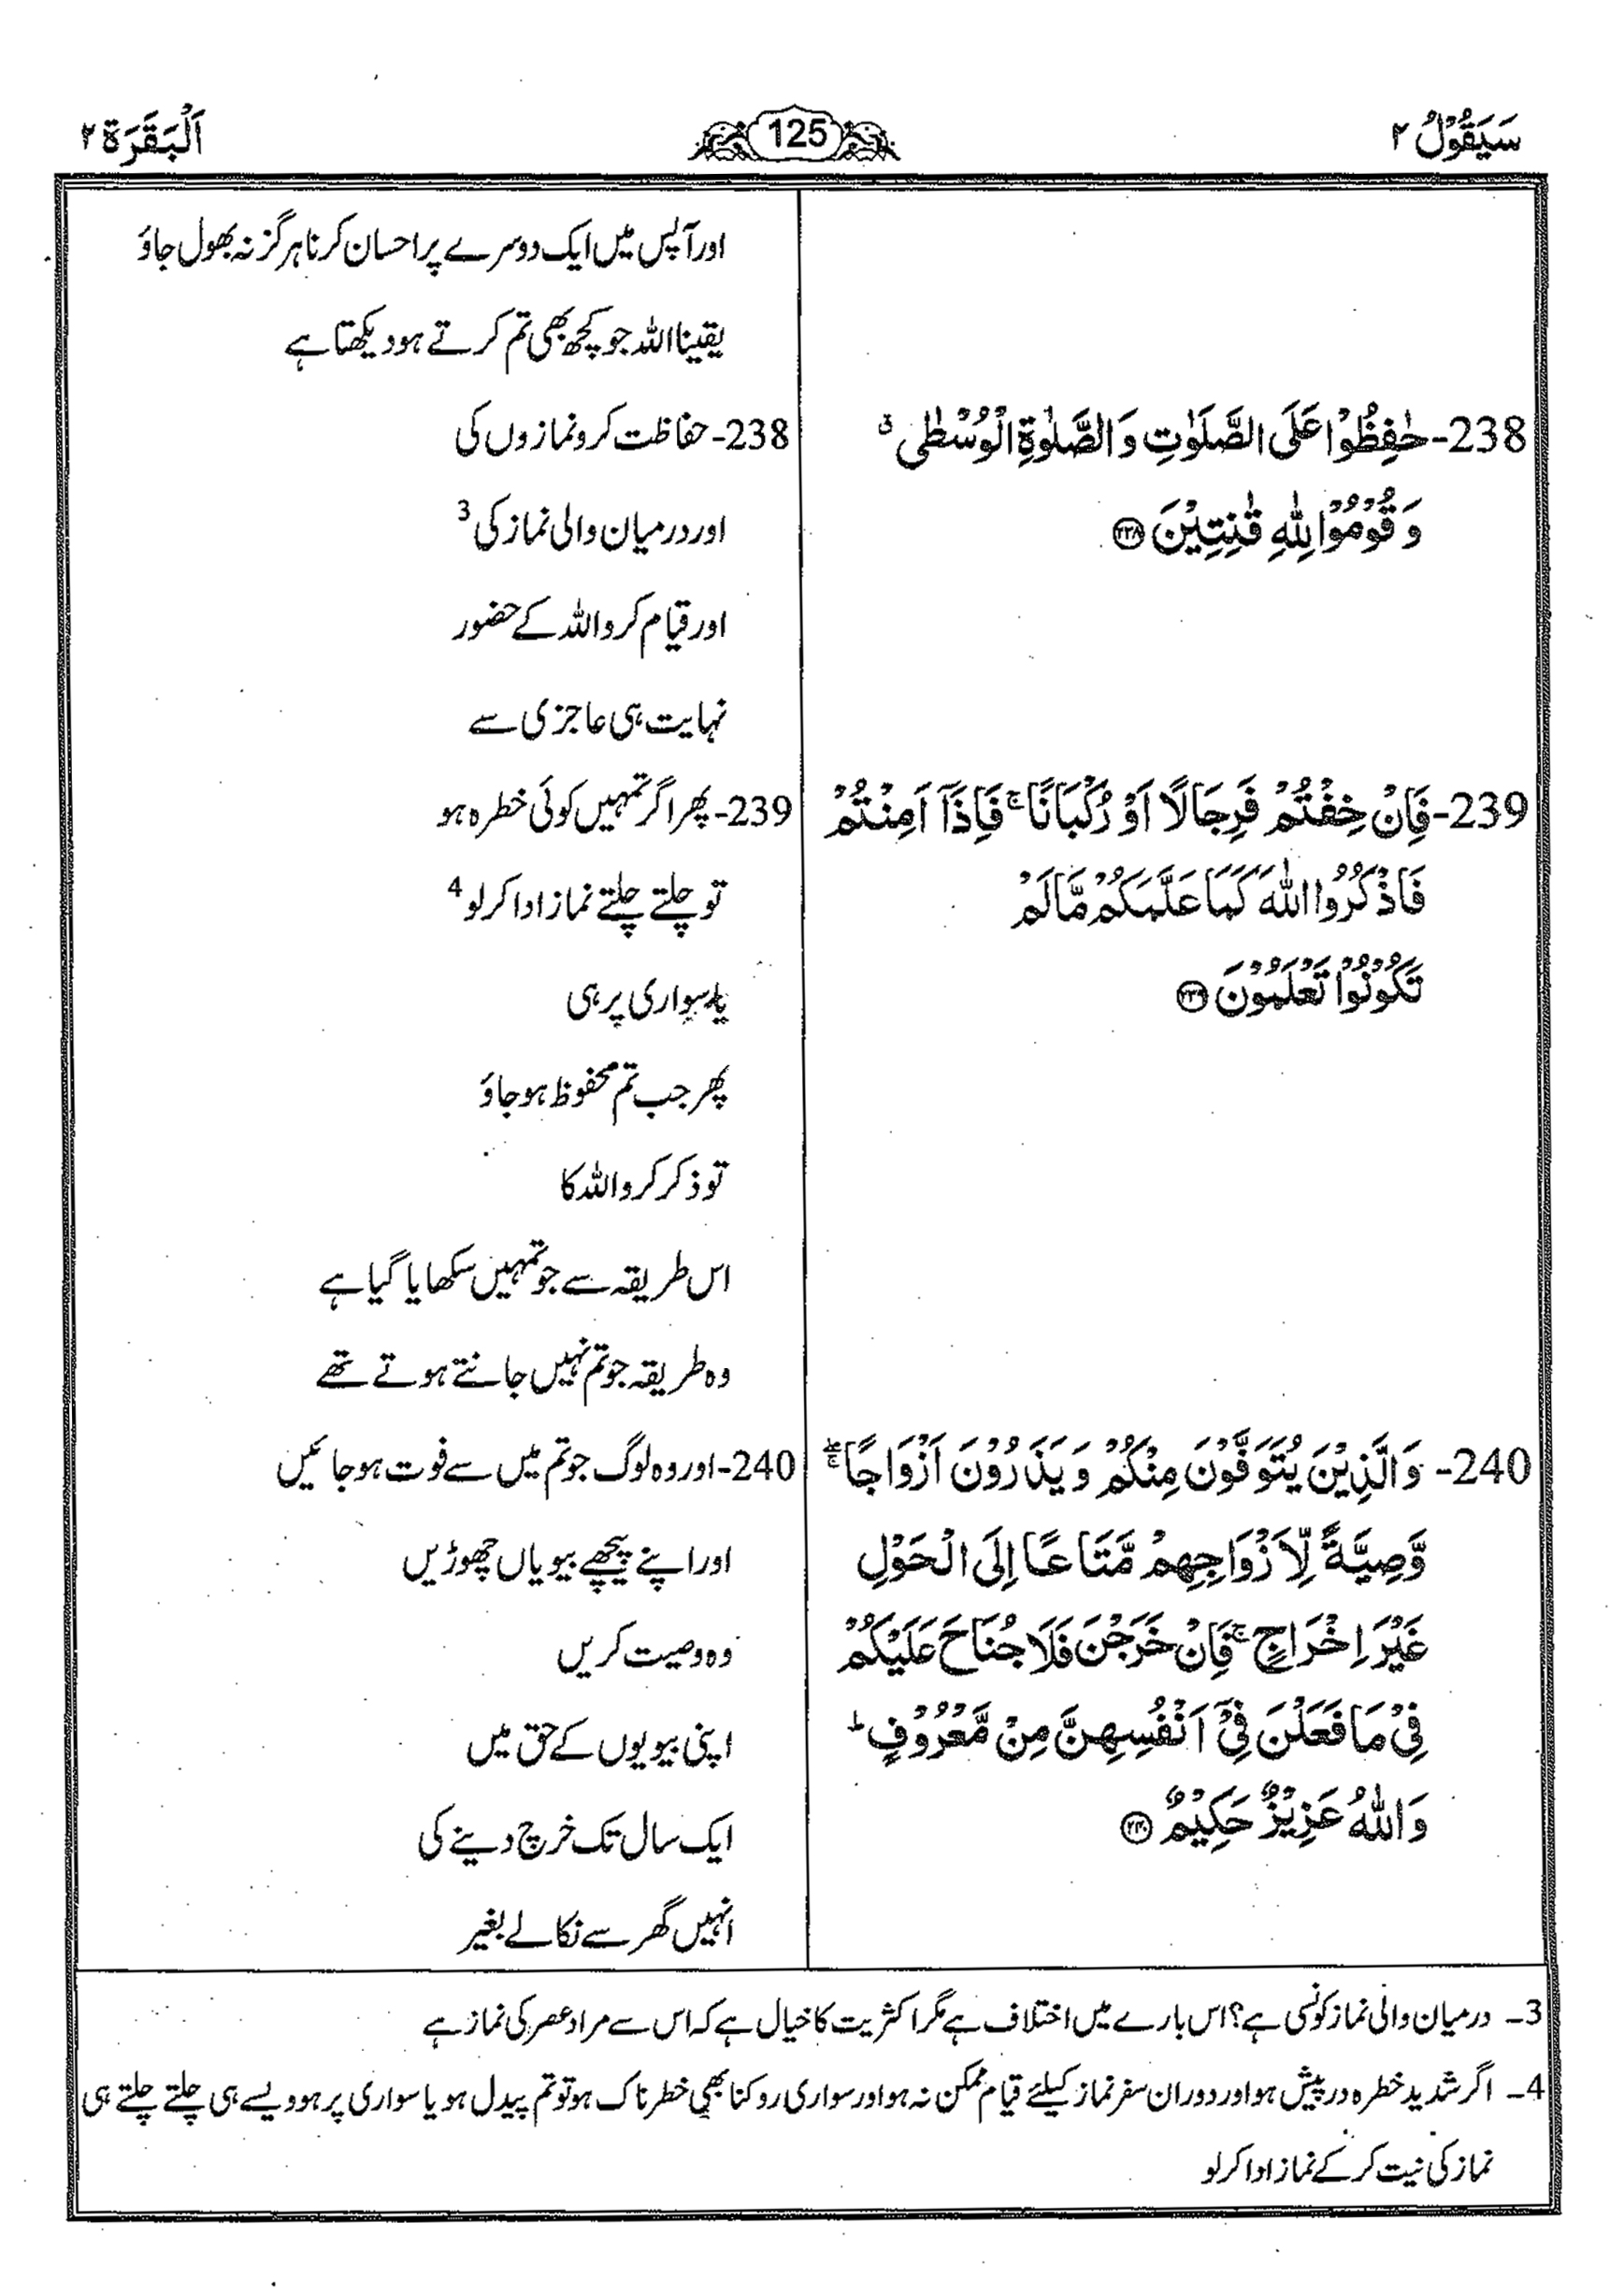 سَيَقُوْلُ ٢
125
اَلْبَقَرَة ٢
238- حٰفِظُوْا عَلَى الصَّلَوٰتِ وَالصَّلٰوةِ الْوُسْطٰى ۗ
وَ قُوْمُوْا لِلّٰهِ قٰنِتِيْنَ ﴿٢٣٨﴾
239- فَاِنْ خِفْتُمْ فَرِجَالًا اَوْ رُكْبَانًا ۚ فَاِذَاۤ اَمِنْتُمْ
فَاذْكُرُوا اللّٰهَ كَمَا عَلَّمَكُمْ مَّا لَمْ
تَكُوْنُوْا تَعْلَمُوْنَ ﴿٢٣٩﴾
240- وَالَّذِيْنَ يُتَوَفَّوْنَ مِنْكُمْ وَ يَذَرُوْنَ اَزْوَاجًا ۖۚ
وَّصِيَّةً لِّاَزْوَاجِهِمْ مَّتَاعًا اِلَى الْحَوْلِ
غَيْرَ اِخْرَاجٍ ۚ فَاِنْ خَرَجْنَ فَلَا جُنَاحَ عَلَيْكُمْ
فِيْ مَا فَعَلْنَ فِيْۤ اَنْفُسِهِنَّ مِنْ مَّعْرُوْفٍ ؕ
وَاللّٰهُ عَزِيْزٌ حَكِيْمٌ ﴿٢٤٠﴾
اور آپس میں ایک دوسرے پر احسان کرنا ہرگز نہ بھول جاؤ
یقینا اللہ جو کچھ بھی تم کرتے ہو دیکھتا ہے
238- حفاظت کرو نمازوں کی
اور درمیان والی نماز کی 3
اور قیام کرو اللہ کے حضور
نہایت ہی عاجزی سے
239- پھر اگر تمہیں کوئی خطرہ ہو
تو چلتے چلتے نماز ادا کر لو 4
یا سواری پر ہی
پھر جب تم محفوظ ہو جاؤ
تو ذکر کرو اللہ کا
اس طریقہ سے جو تمہیں سکھایا گیا ہے
وہ طریقہ جو تم نہیں جانتے ہوتے تھے
240- اور وہ لوگ جو تم میں سے فوت ہو جائیں
اور اپنے پیچھے بیویاں چھوڑیں
وہ وصیت کریں
اپنی بیویوں کے حق میں
ایک سال تک خرچ دینے کی
انہیں گھر سے نکالے بغیر
3۔ درمیان والی نماز کونسی ہے؟ اس بارے میں اختلاف ہے مگر اکثریت کا خیال ہے کہ اس سے مراد عصر کی نماز ہے
4۔ اگر شدید خطرہ در پیش ہو اور دوران سفر نماز کیلئے قیام ممکن نہ ہو اور سواری روکنا بھی خطرناک ہو تو تم پیدل ہو یا سواری پر ہو ویسے ہی چلتے چلتے ہی
نماز کی نیت کر کے نماز ادا کر لو